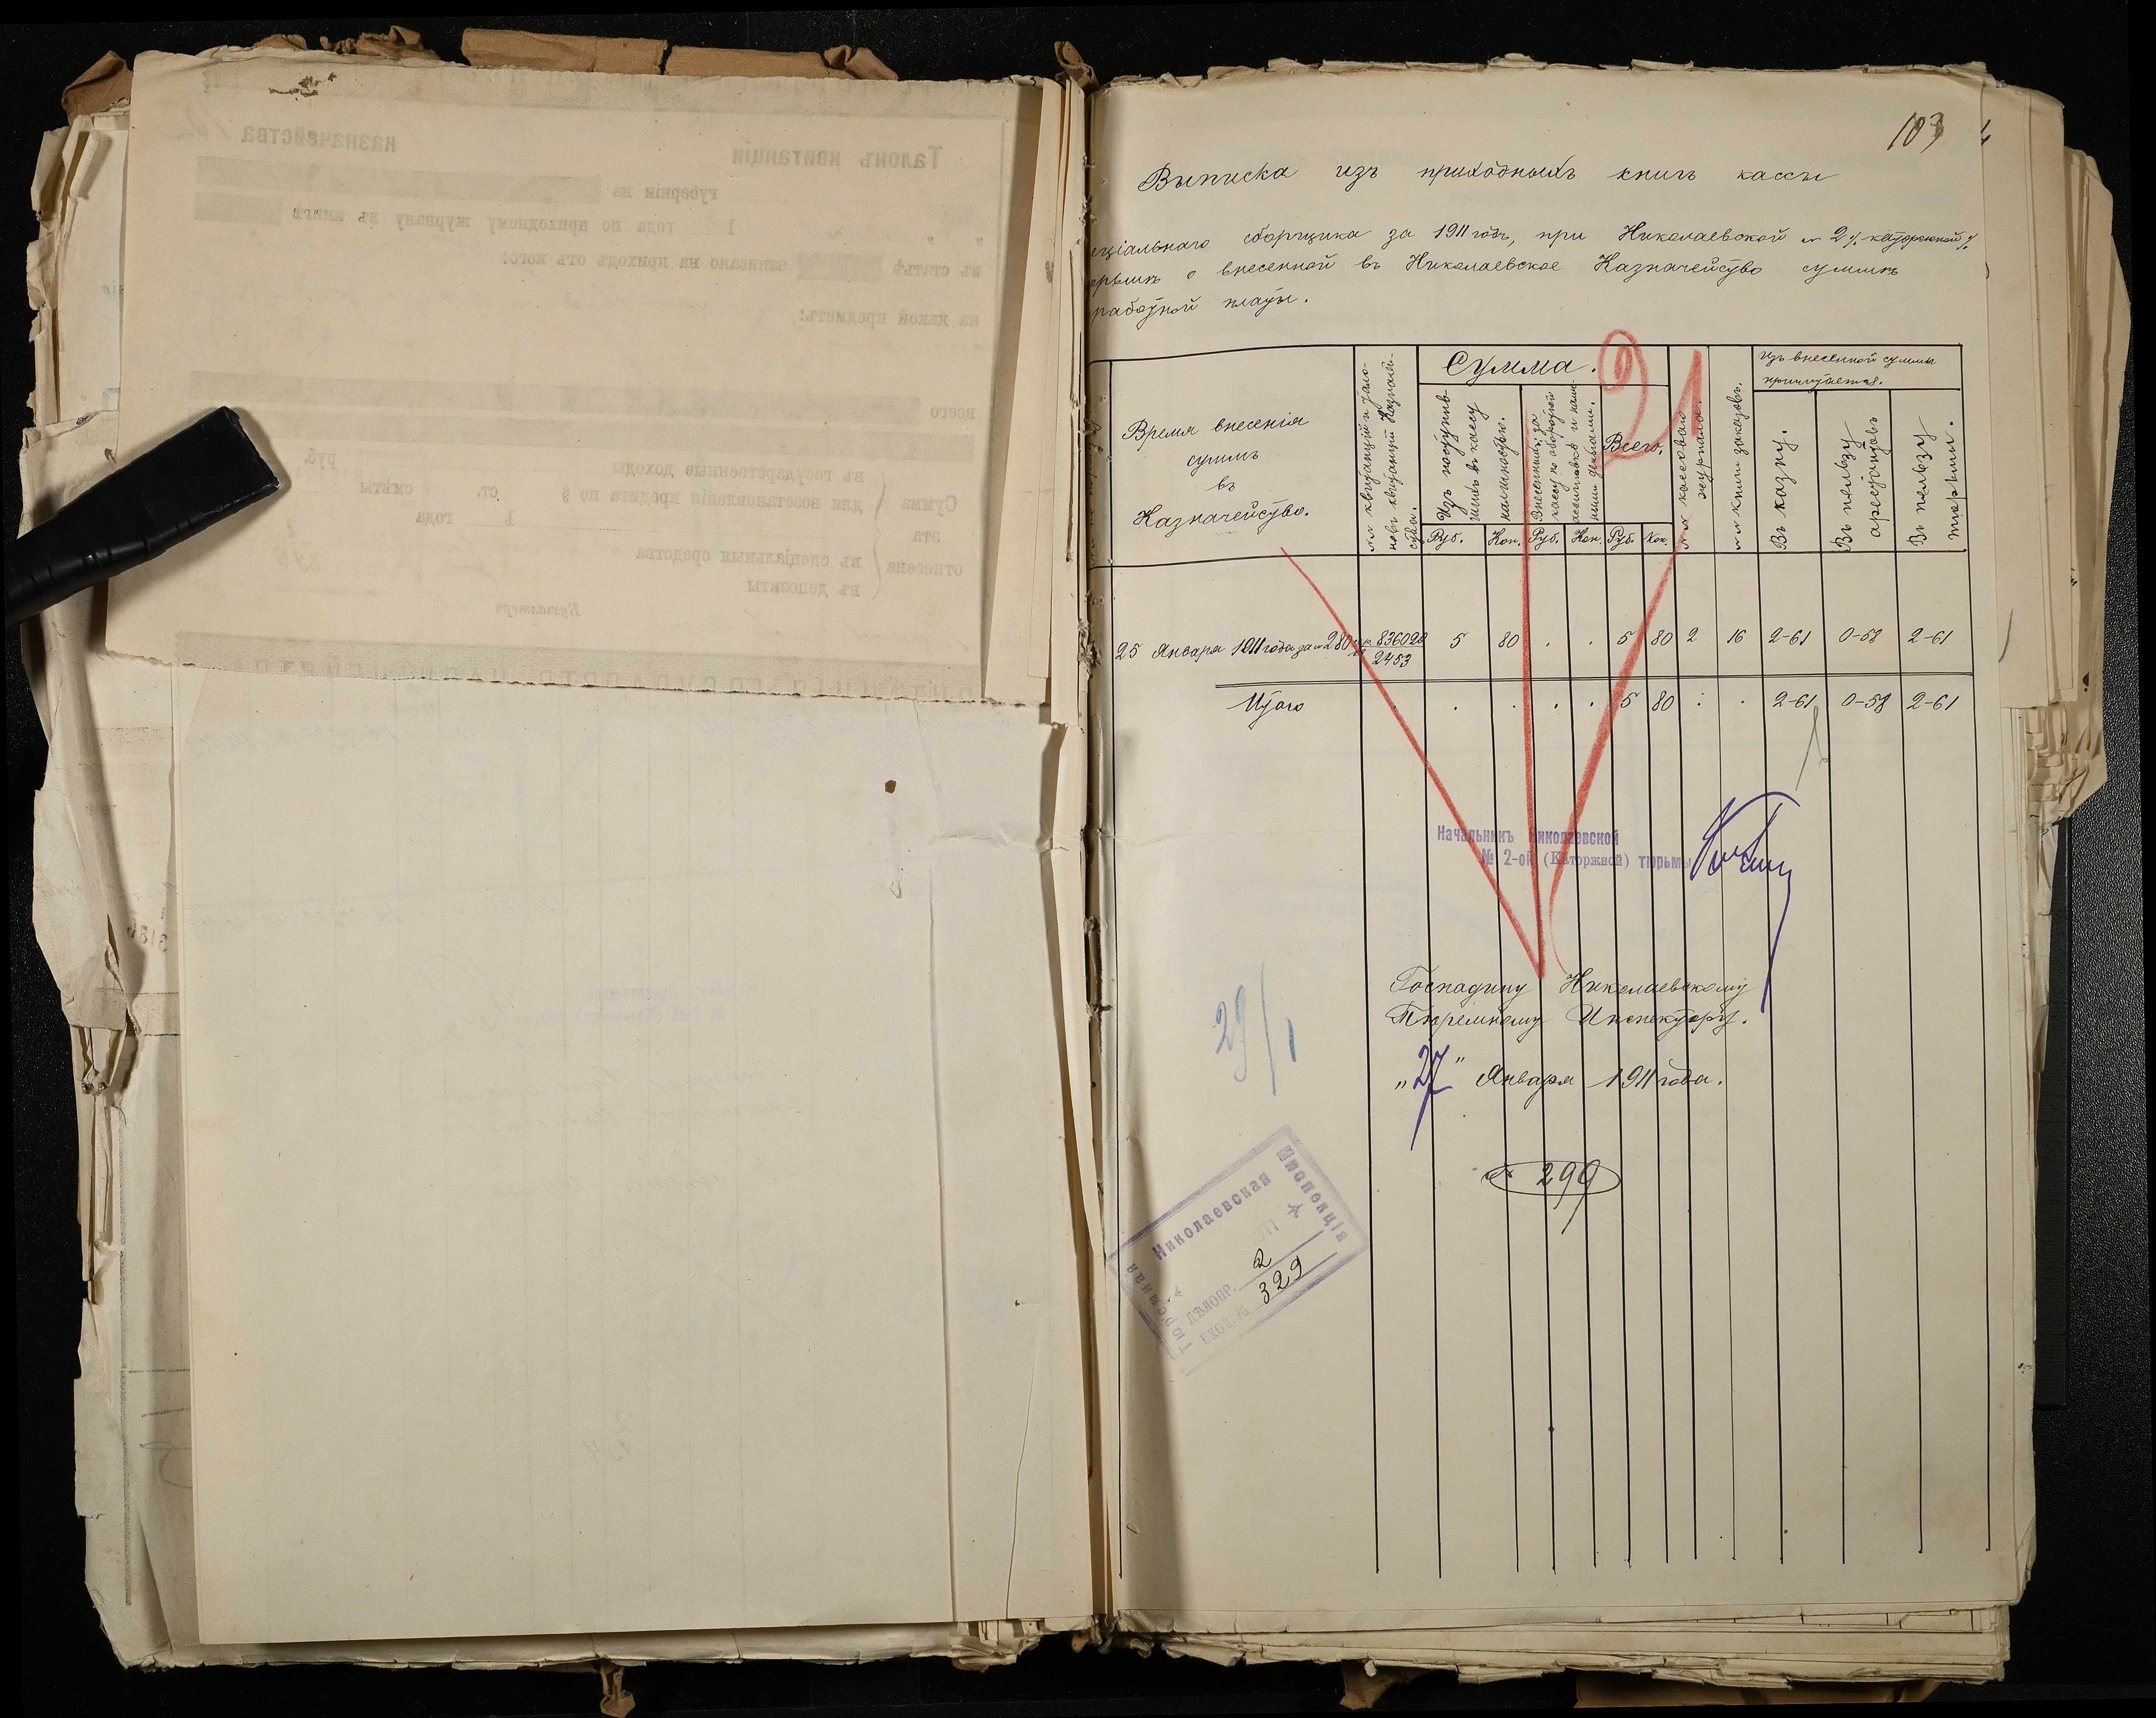 103
Выписка изъ приходныхъ книгъ кассы
еціальнаго сборщика за 1911 годъ, при Николаевской № 2 /каторжной/
рьмѣ о внесенной въ Николаевское Казначейство суммѣ
работной платы.
Время внесенія
суммъ
въ
Казначейство.
№№ квитанцій и тало-
новъ квитанцій Казначей-
ства.
Сумма.
Изъ поступив-
шихъ въ кассу
наличностью.
Всего.
Руб. Коп. Руб. Коп. Руб. Коп.
№№ кассоваго
журнала.
№№ книги заказовъ.
Изъ внесенной суммы
причитается.
Въ казну.
Въ пользу
арестантовъ
Въ пользу
тюрьмы.
25 Января 1911 года за № 280 836028 5 80 . . 5 80 2 16 2-61 0-58 2-61
2453
Итого . . . . . 5 80 : . 2-61 0-58 2-61
Начальникъ Николаевской
№ 2-ой (Каторжной) тюрьмы
Господину Николаевскому
Тюремному Инспектору.
„27" Января 1911 года.
29/1
№ 299
Николаевская
Тюремная Инспекція
ДѢЛОПР. 2
ВХОД. № 329
Талонъ квитанціи назначейства
губерніи на
1 года по приходному журналу въ книгѣ
въ статьѣ записано на приходъ отъ кого:
на какой предметъ:
всего
руб.
Сумма въ государственные доходы
эта для возстановленія кредита по § ст. смѣты
1 года
отнесена въ спеціальныя средства
въ депозиты
Бухгалтеръ